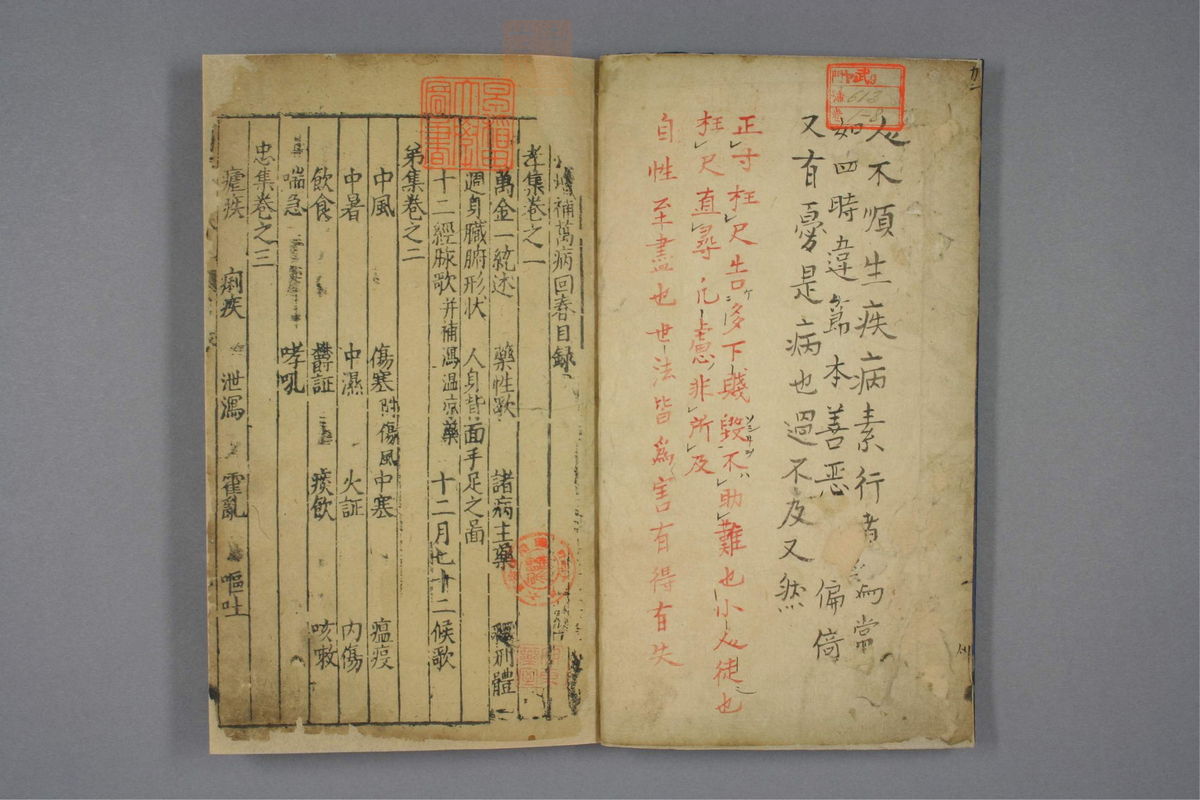 人不順生疾病素行者為常
如四時違節本善惡 偏倚
又有憂是病也過不及又然
正寸枉尺告多下賤毀不助難也小人徒也
枉尺直尋 慮非所及
自性至盡也世法皆為害有得有失
613
増補萬病回春目録
孝集卷之一
萬金一統述 藥性歌 諸病主藥 體
週身臟腑形狀 人身背面手足之啚
十二經脉歌 并補瀉温凉藥 十二月七十二候歌
弟集卷之二
中風 傷寒 附傷風 中寒 瘟疫
中暑 中濕 火証 内傷
飲食 鬱証 痰飲 咳嗽
喘急 哮吼
忠集卷之三
瘧疾 痢疾 泄瀉 霍亂 嘔吐